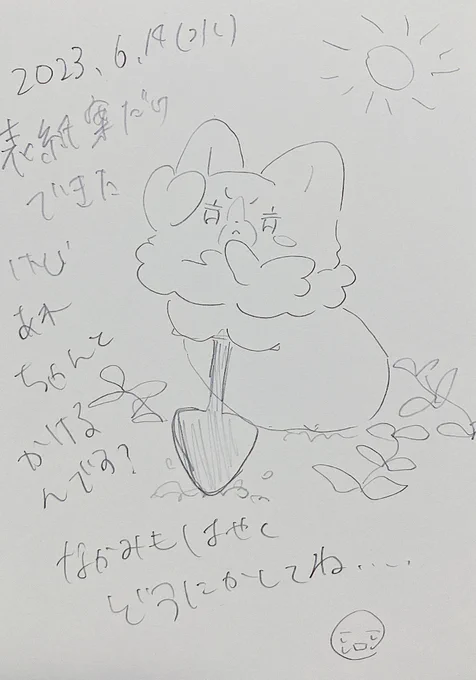 2023.6.14(水)
表紙案だけ
できた
けど
あれ
ちゃんと
かける
んです?
なかみもしはせく
どうにかしてね....